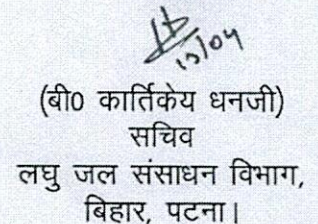 13/04
(बी0 कार्तिकेय धनजी)
सचिव
लघु जल संसाधन विभाग,
बिहार, पटना।